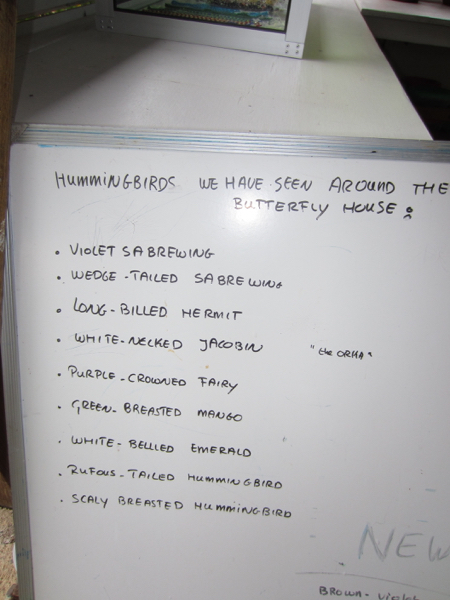 HUMMINGBIRDS WE HAVE SEEN AROUND THE
BUTTERFLY HOUSE:
• VIOLET SABREWING
• WEDGE-TAILED SABREWING
• LONG-BILLED HERMIT
• WHITE-NECKED JACOBIN "the ORHA"
• PURPLE-CROWNED FAIRY
• GREEN-BREASTED MANGO
• WHITE-BELLIED EMERALD
• RUFOUS-TAILED HUMMINGBIRD
• SCALY BREASTED HUMMINGBIRD
NEW
BROWN-VIOLET